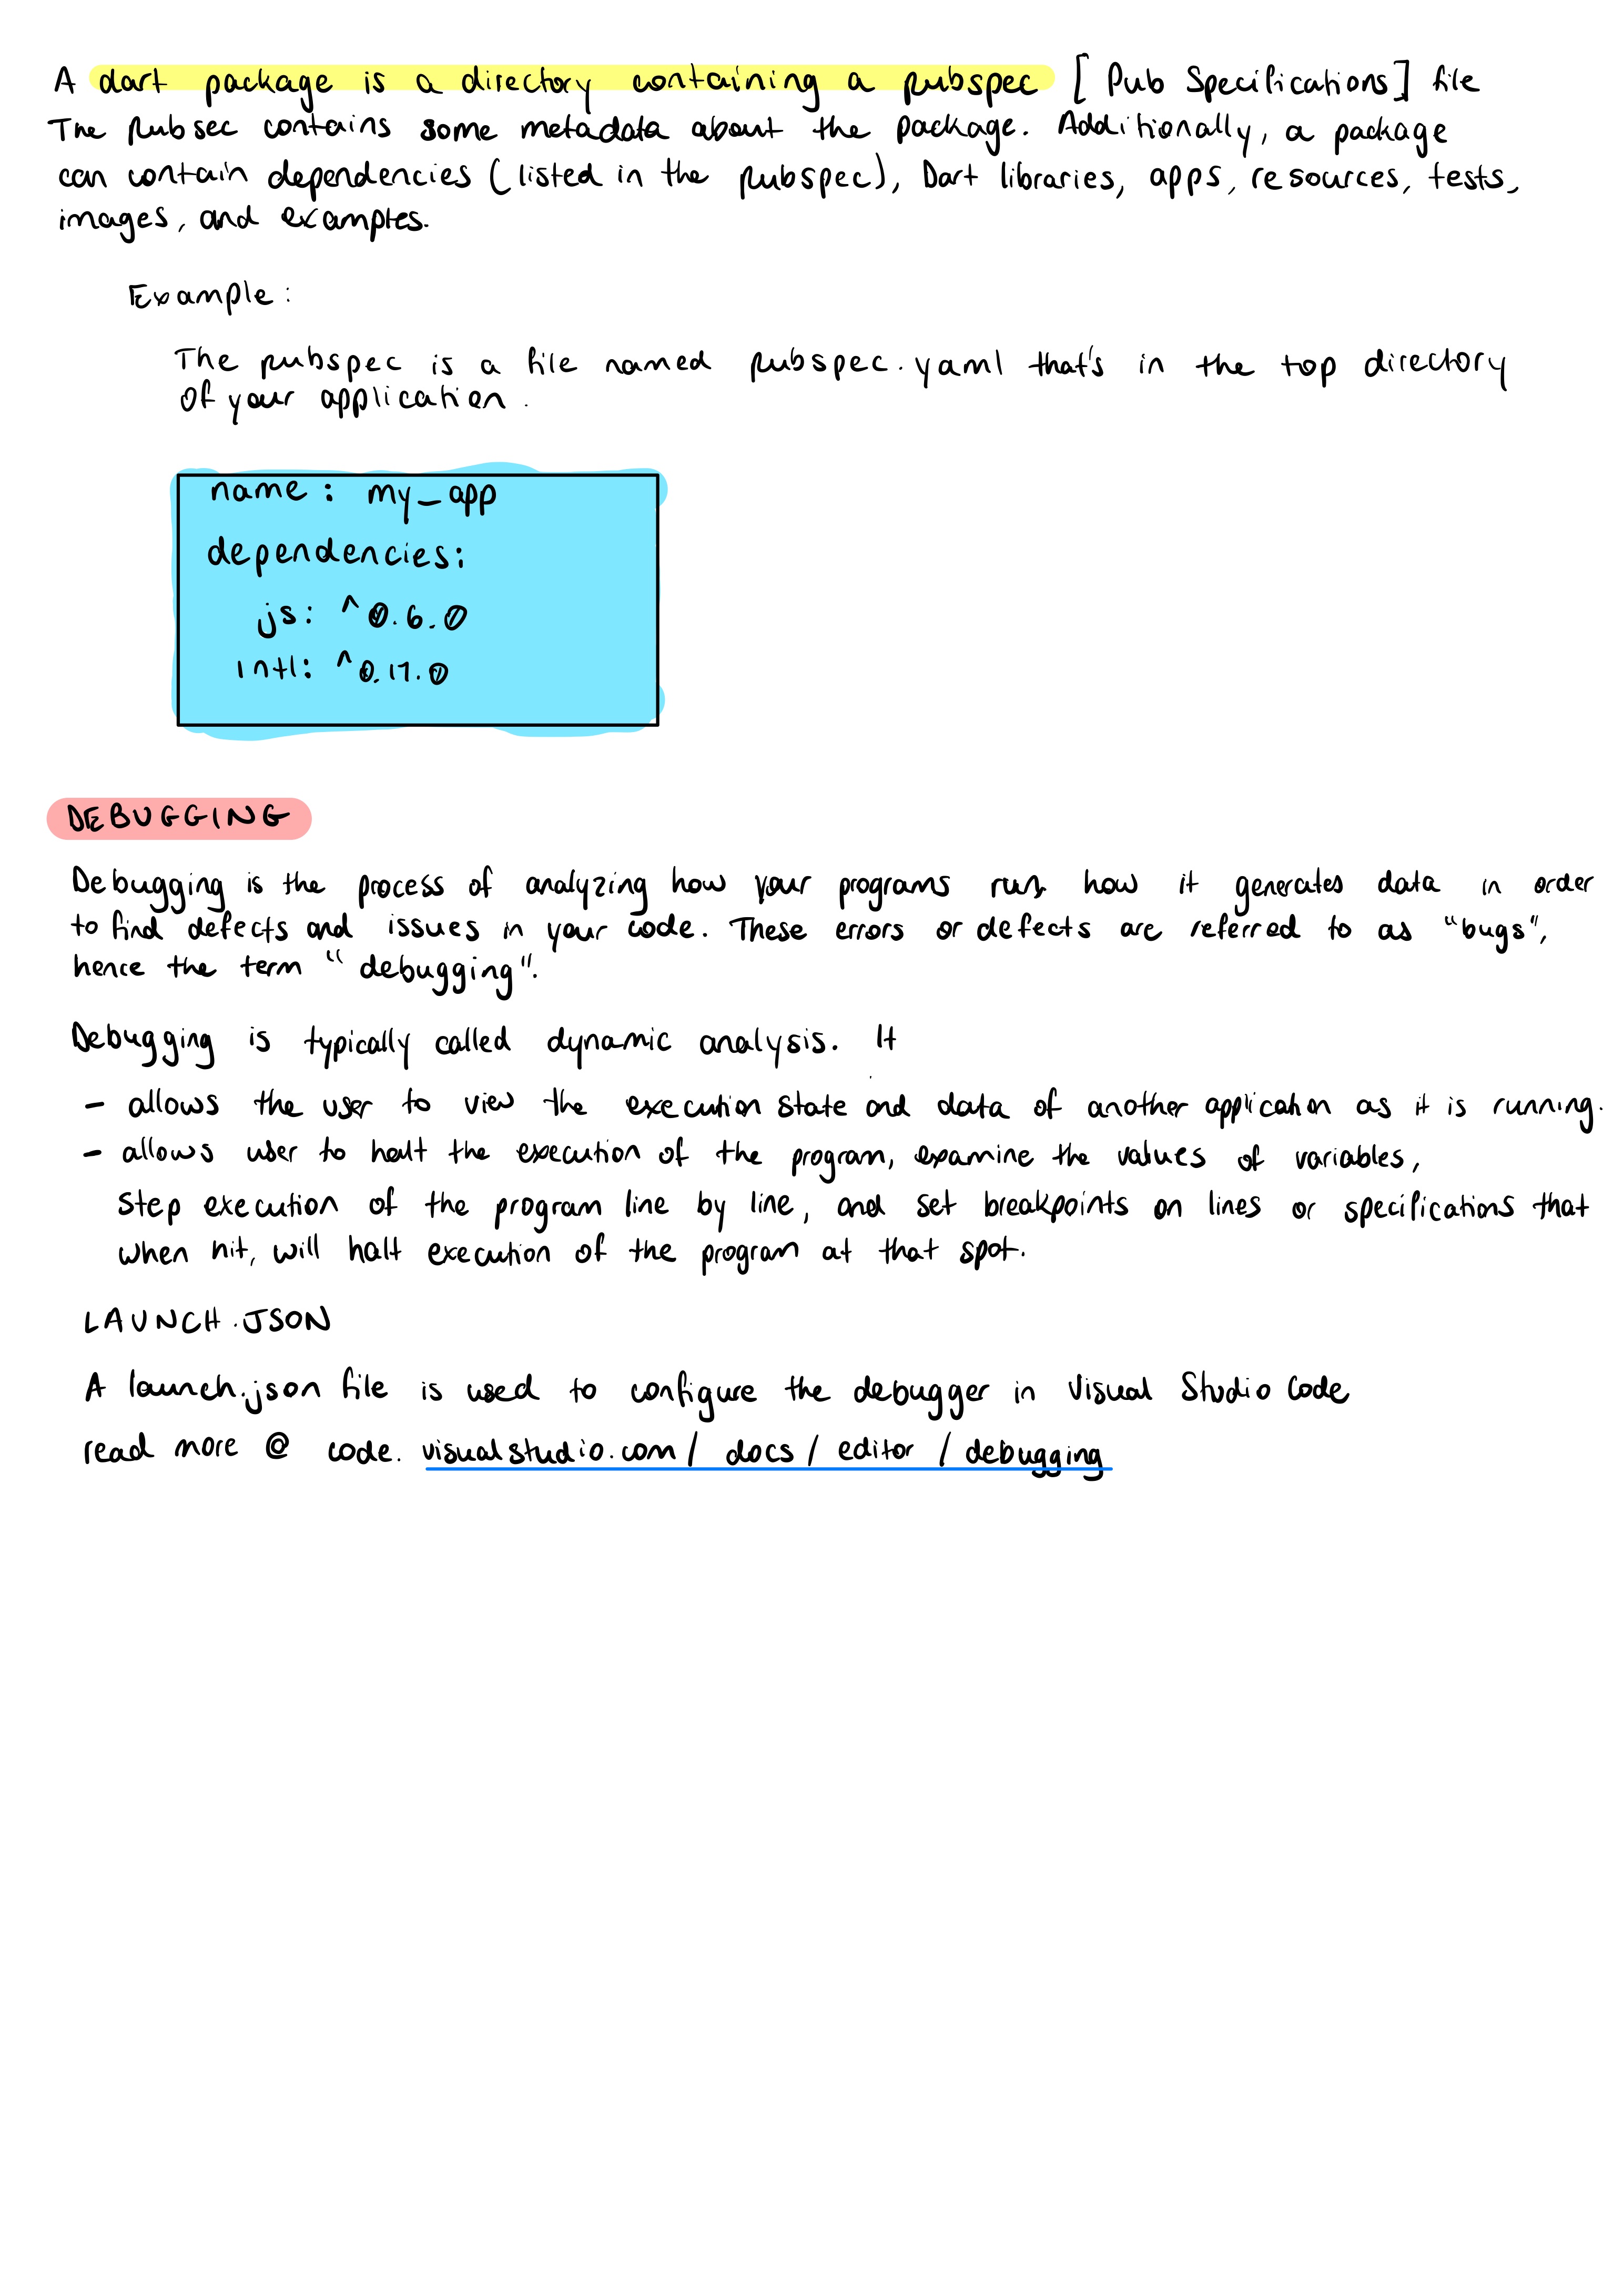 A dart package is a directory containing a pubspec [Pub Specifications] file
The pubsec contains some metadata about the package. Additionally, a package
can contain dependencies (listed in the pubspec), Dart libraries, apps, resources, tests,
images, and examples.
Example:
The pubspec is a file named pubspec.yaml that's in the top directory
of your application.
name: my_app
dependencies:
js: ^0.6.0
intl: ^0.17.0
DEBUGGING
Debugging is the process of analyzing how your programs run, how it generates data in order
to find defects and issues in your code. These errors or defects are referred to as "bugs",
hence the term "debugging".
Debugging is typically called dynamic analysis. It
- allows the user to view the execution state and data of another application as it is running.
- allows user to halt the execution of the program, examine the values of variables,
step execution of the program line by line, and set breakpoints on lines or specifications that
when hit, will halt execution of the program at that spot.
LAUNCH.JSON
A launch.json file is used to configure the debugger in Visual Studio Code
read more @ code.visualstudio.com/docs/editor/debugging